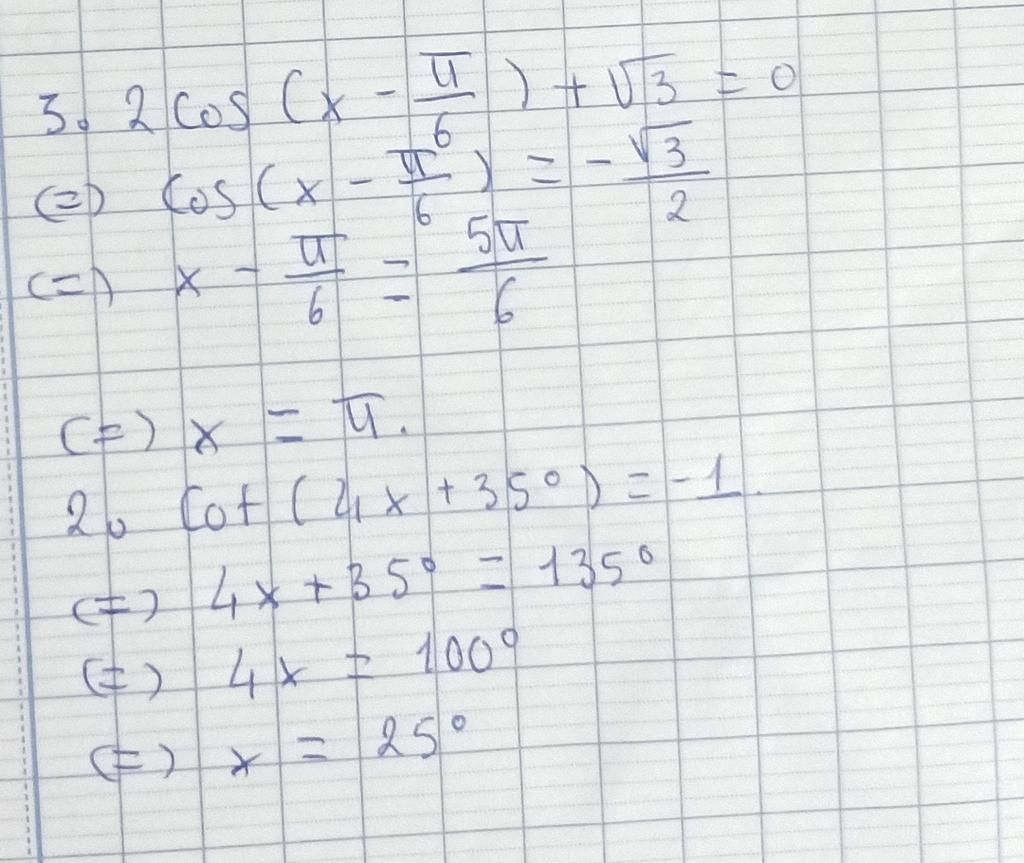 3. 2 cos (x - π/6) + √3 = 0
(=) cos (x - π/6) = - √3/2
(=) x - π/6 = 5π/6
(=) x = π.
2. cot (4x + 35°) = -1.
(=) 4x + 35° = 135°
(=) 4x = 100°
(=) x = 25°